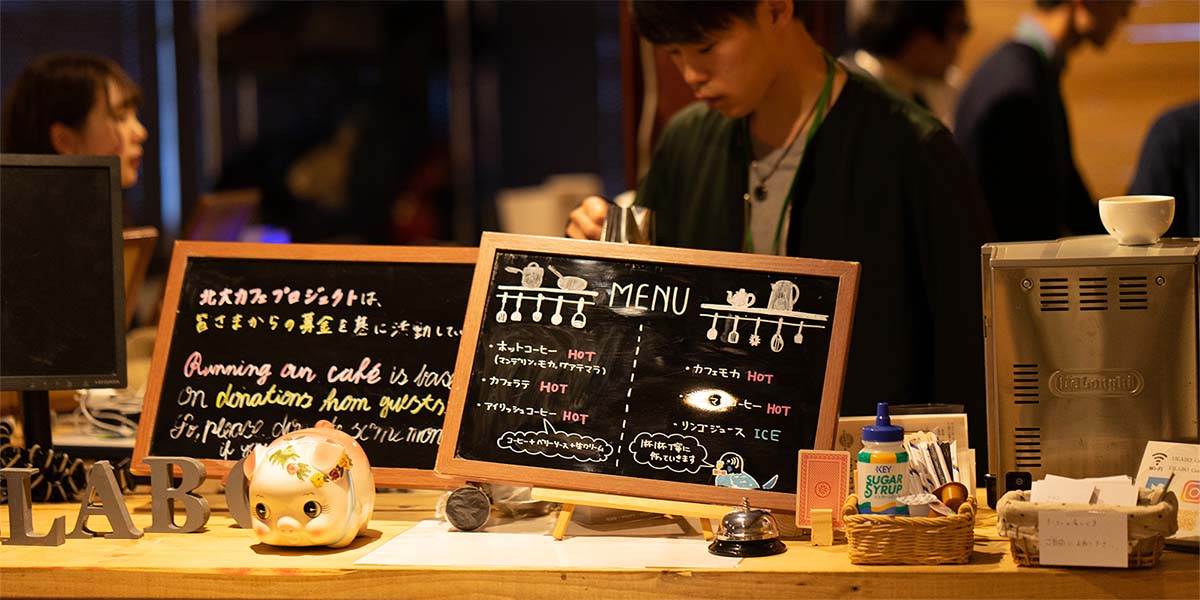 北大カフェプロジェクトは、
皆さまからの募金を基に活動してい
Running an café is base
on donations from guests.
So, please do some mon
if
MENU
・ホットコーヒー HOT
(マンデリン、モカ、グアテマラ)
・カフェラテ HOT
・アイリッシュコーヒー HOT
コーヒー+ベリーソース+生クリーム
・カフェモカ HOT
コーヒー HOT
・リンゴジュース ICE
1杯1杯丁寧に
作っていきます
LABO
KEY
SUGAR
SYRUP
DeLonghi
Wi-Fi